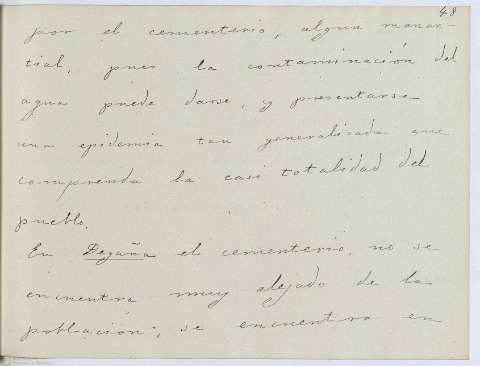 48
por el cementerio, algun manan-
tial, pues la contaminación del
agua puede darse, y presentarse
una epidemia tan generalizada que
comprenda la casi totalidad del
pueblo.
En Degaña el cementerio, no se
encuentra muy alejado de la
población; se encuentra en